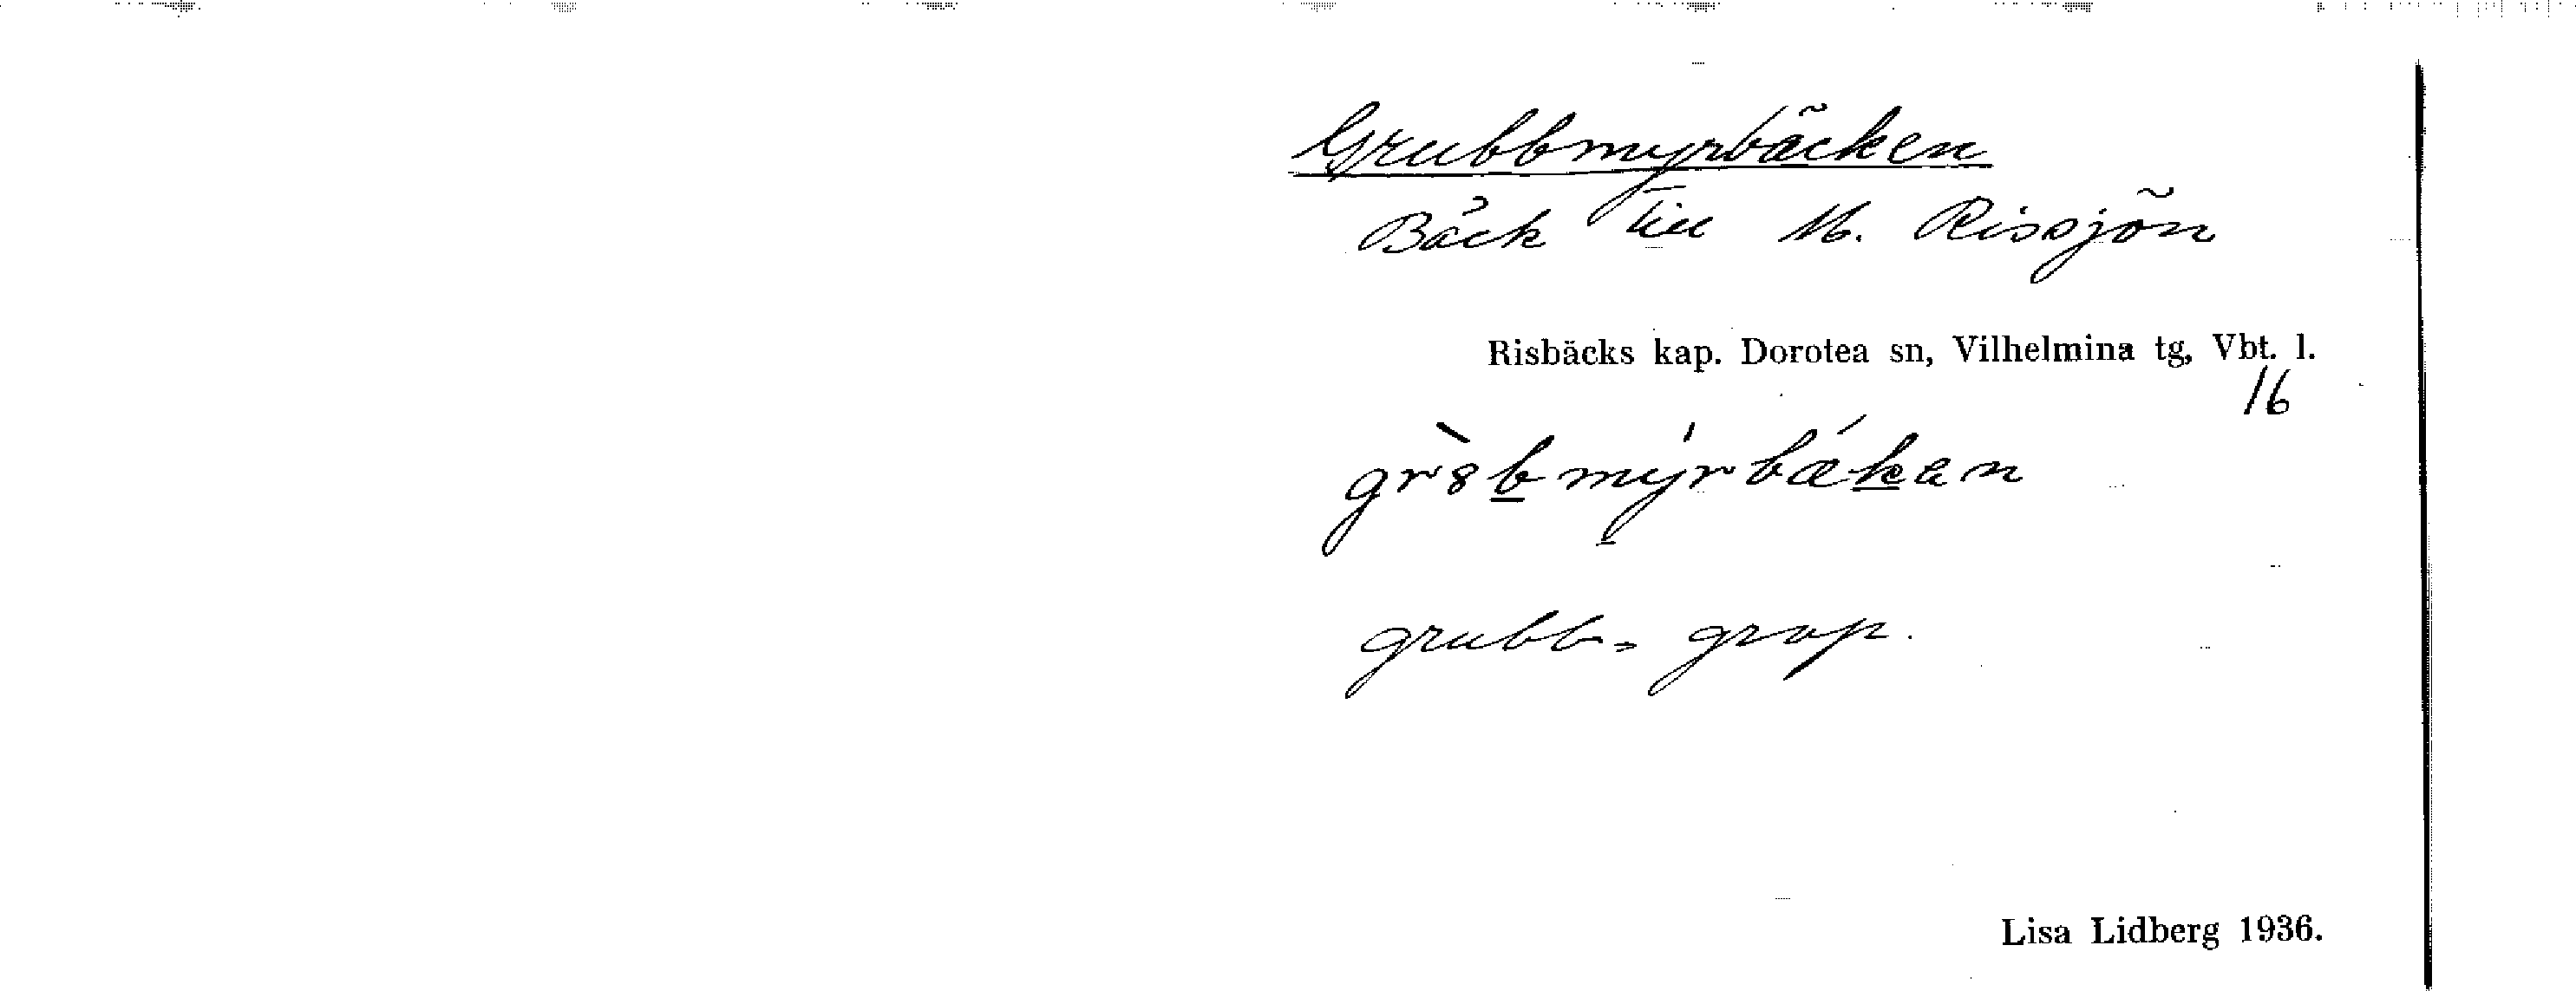 Grubbmyrbäcken
Bäck till M. Rissjön
Risbäcks kap. Dorotea sn, Vilhelmina tg, Vbt. l.
16
gr8bmyrbækan
grubb = grop.
Lisa Lidberg 1936.